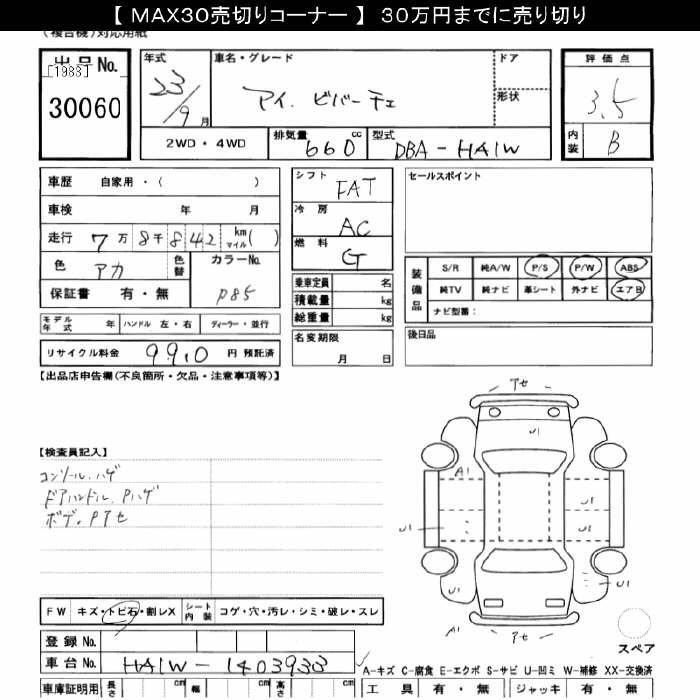 【 MAX30売切りコーナー 】 30万円までに売り切り
(複合機)対応用紙
出品No.
[1983]
30060
年式
23/9 月
車名・グレード
アイ. ビバーチェ
ドア
形状
評価点
3.5
内装
B
2WD・4WD
排気量 660 cc
型式 DBA-HA1W
車歴 自家用・( )
車検 年 月
走行 7万8千842 km マイル( )
色 アカ 色替
カラーNo. P85
保証書 有・無
シフト FAT
冷房 AC
燃料 G
乗車定員 名
積載量 kg
総重量 kg
セールスポイント
装備品
S/R 純A/W P/S P/W ABS
純TV 純ナビ 革シート 外ナビ エアB
ナビ型番:
モデル年式 年 ハンドル 左・右 ディーラー・並行
リサイクル料金 990 円 預託済
名変期限
月 日
後日品
【出品店申告欄(不良箇所・欠品・注意事項等)】
【検査員記入】
コンソール.ハゲ
ドアハンドル.Pハゲ
ボデ.Pアセ
アセ
U1
A1
U1
U1
U1
U1
A1
アセ
スペア
FW キズ・トビ石・割レX シート内装 コゲ・穴・汚レ・シミ・破レ・スレ
登録No.
車台No. HA1W-1403933
A-キズ C-腐食 E-エクボ S-サビ U-凹ミ W-補修 XX-交換済
車庫証明用 長さ cm 幅 cm 高さ cm
工具 有・無 ジャッキ 有・無